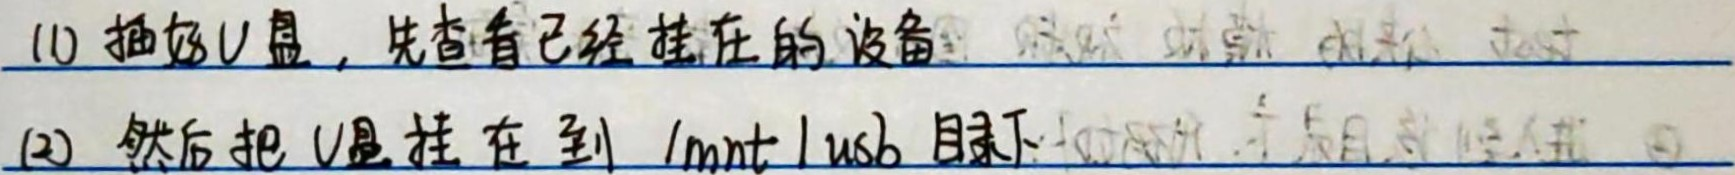 (1) 插好U盘，先查看已经挂在的设备
(2) 然后把U盘挂在到 /mnt/usb 目录下